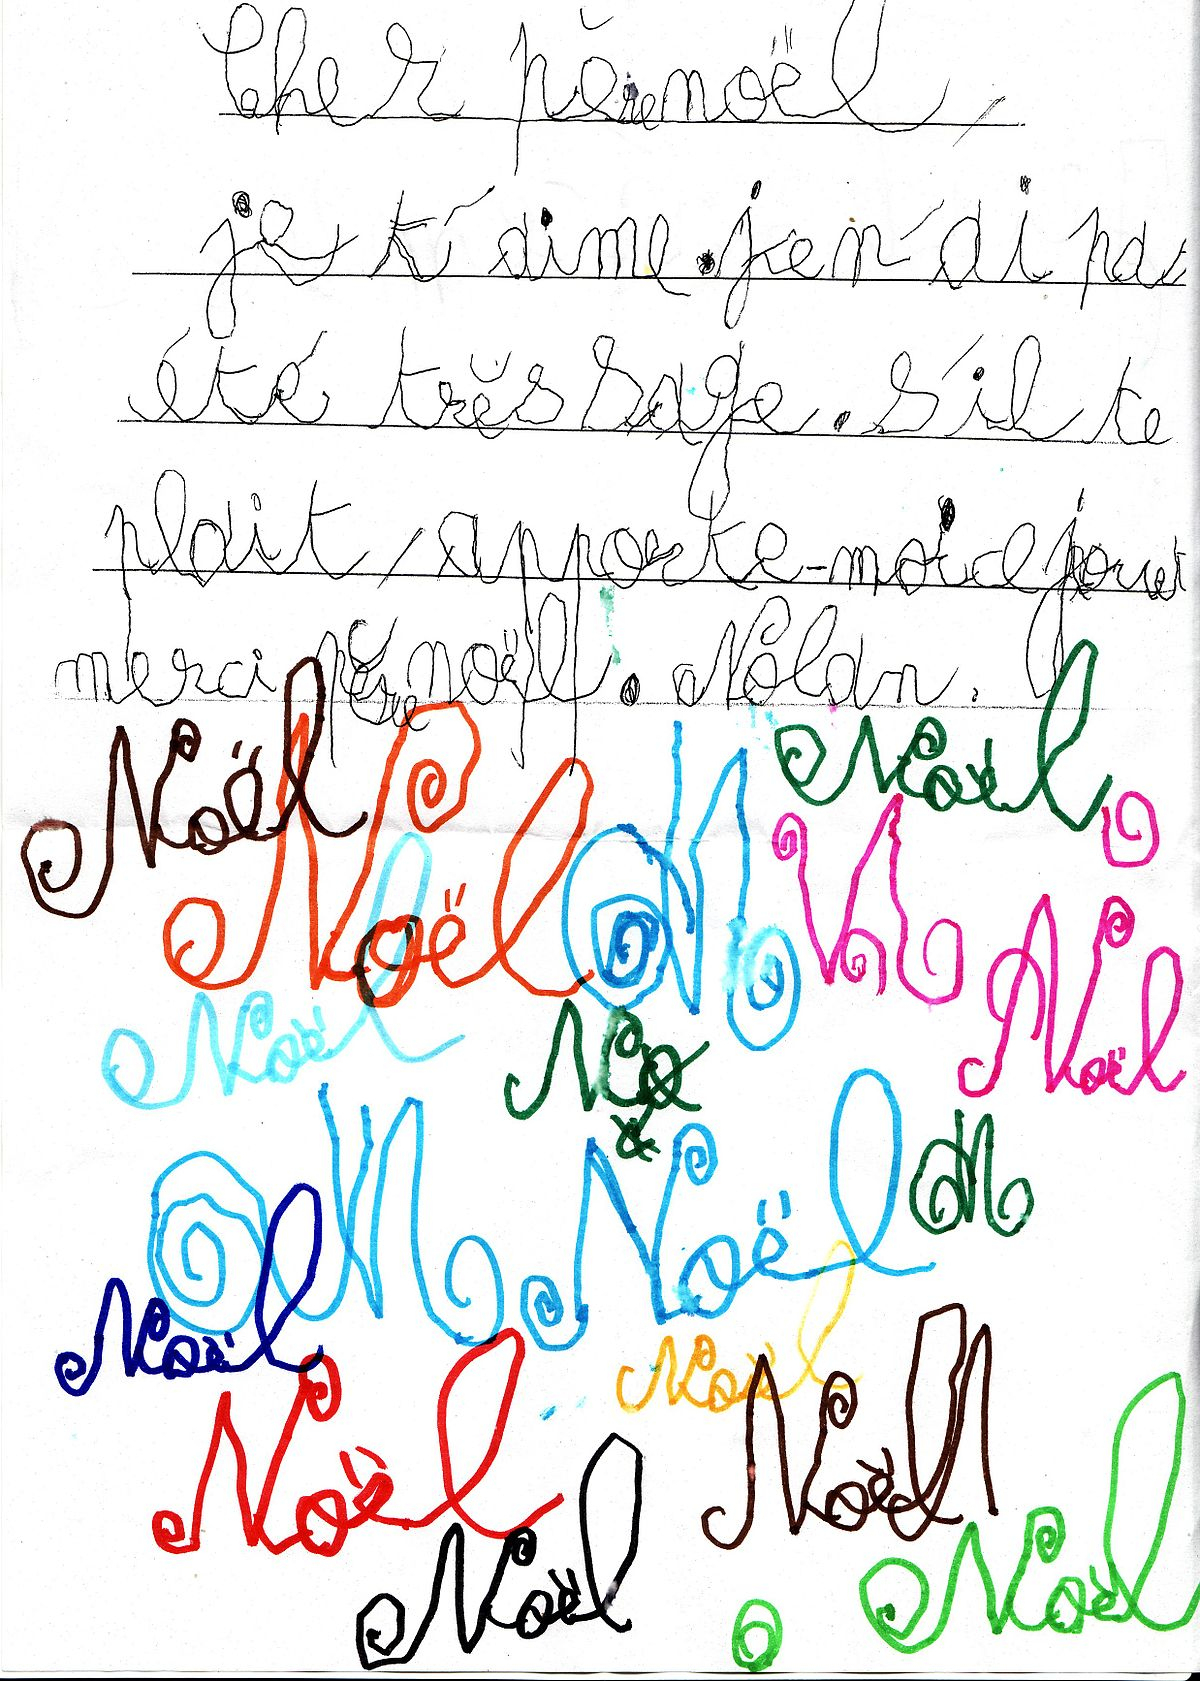 Cher père noël,
je t'aime. je n'ai pas
été très Sage. S'il te
plait, apporte-moi
merci père noël. Nolan.
Noël
Noël
Noël
N
N
Noël
Noël
No
N
Noël
N
Noël
Noël
Noël
Noël
Noël
Noël